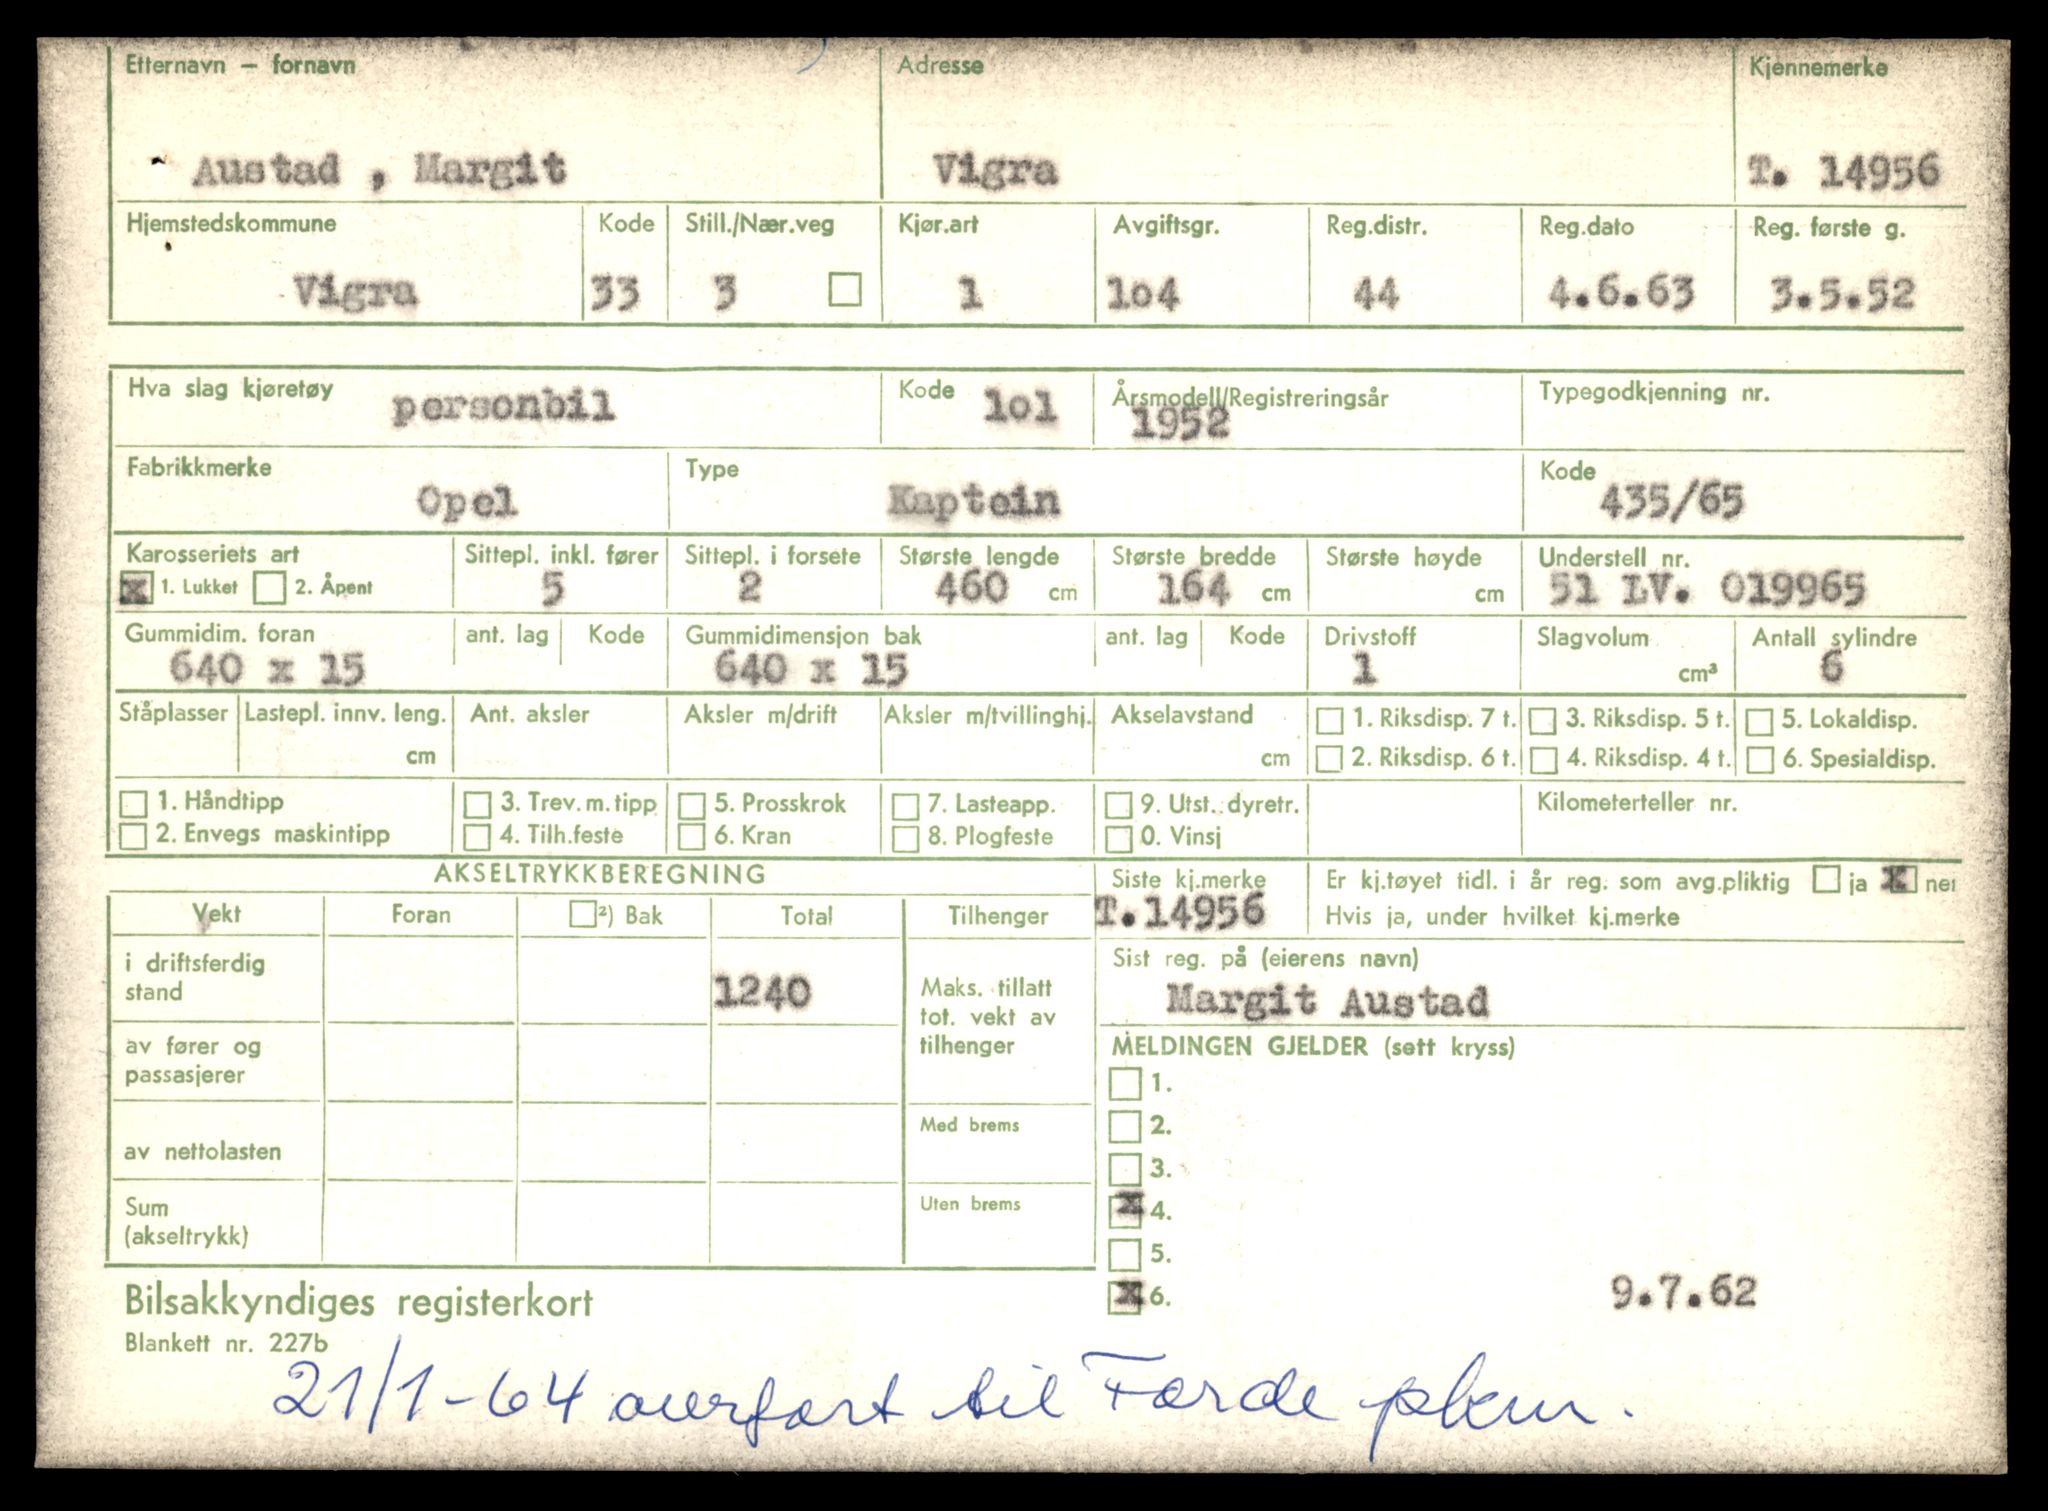 Etternavn – fornavn Adresse Kjennemerke
Austad , Margit Vigra T. 14956
Hjemstedskommune Kode Still./Nær.veg Kjør.art Avgiftsgr. Reg.distr. Reg.dato Reg. første g.
Vigra 33 3 1 1o4 44 4.6.63 3.5.52
Hva slag kjøretøy personbil Kode 1o1 Årsmodell/Registreringsår Typegodkjenning nr.
1952
Fabrikkmerke Type Kode
Opel Kaptein 435/65
Karosseriets art Sittepl. inkl. fører Sittepl. i forsete Største lengde Største bredde Største høyde Understell nr.
x 1. Lukket 2. Åpent 5 2 460 cm 164 cm cm 51 LV. 019965
Gummidim. foran ant. lag Kode Gummidimensjon bak ant. lag Kode Drivstoff Slagvolum Antall sylindre
640 x 15 640 x 15 1 cm³ 6
Ståplasser Lastepl. innv. leng. Ant. aksler Aksler m/drift Aksler m/tvillinghj. Akselavstand 1. Riksdisp. 7 t. 3. Riksdisp. 5 t. 5. Lokaldisp.
cm cm 2. Riksdisp. 6 t. 4. Riksdisp. 4 t. 6. Spesialdisp.
1. Håndtipp 3. Trev. m. tipp 5. Prosskrok 7. Lasteapp. 9. Utst. dyretr. Kilometerteller nr.
2. Envegs maskintipp 4. Tilh.feste 6. Kran 8. Plogfeste 0. Vinsj
AKSELTRYKKBEREGNING Siste kj.merke Er kj.tøyet tidl. i år reg. som avg.pliktig ja x nei
Vekt Foran ²) Bak Total Tilhenger T.14956 Hvis ja, under hvilket kj.merke
i driftsferdig stand 1240 Maks. tillatt tot. vekt av tilhenger
Sist reg. på (eierens navn)
Margit Austad
av fører og passasjerer
MELDINGEN GJELDER (sett kryss)
1.
av nettolasten Med brems 2.
3.
Sum (akseltrykk) Uten brems x 4.
5.
x 6. 9.7.62
Bilsakkyndiges registerkort
Blankett nr. 227b
21/1-64 overført til Førde pkm.